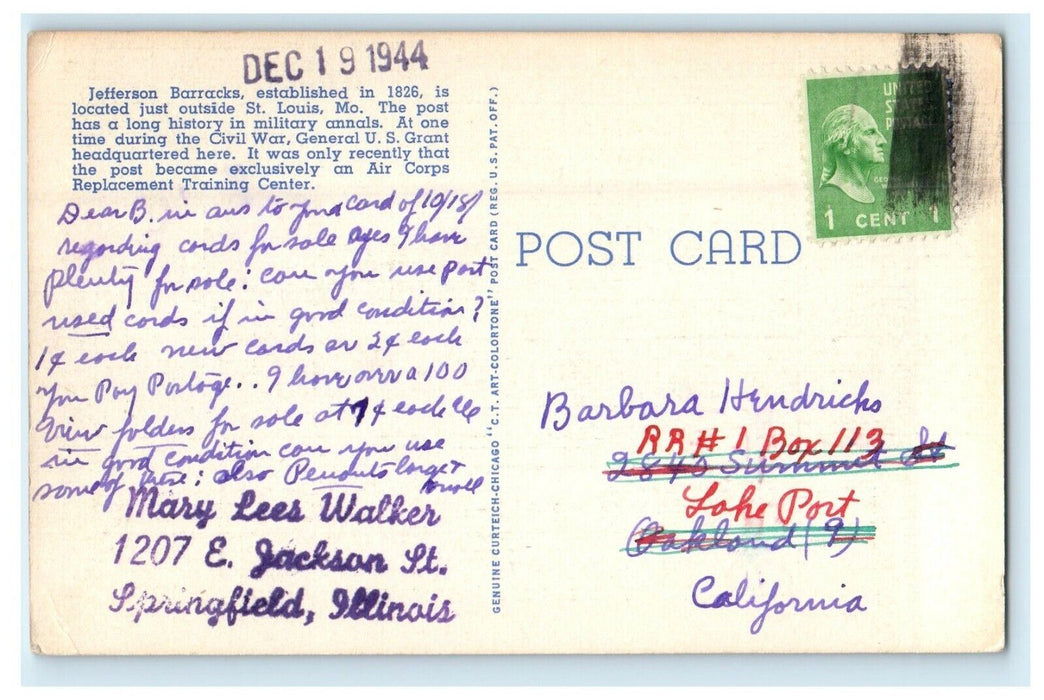 DEC 19 1944
Jefferson Barracks, established in 1826, is
located just outside St. Louis, Mo. The post
has a long history in military annals. At one
time during the Civil War, General U. S. Grant
headquartered here. It was only recently that
the post became exclusively an Air Corps
Replacement Training Center.
Dear B. in ans to your card of 10/18/
regarding cards for sale yes I have
plenty for sale: can you use post
used cards if in good condition?
1¢ each new cards or 2¢ each
you Pay Postage.. I have over a 100
View folders for sale at 7¢ each
in good condition can you use
some of these: also large &
small
Mary Lees Walker
1207 E. Jackson St.
Springfield, Illinois
GENUINE CURTEICH-CHICAGO "C.T. ART-COLORTONE" POST CARD (REG. U.S. PAT. OFF.)
UNITED
STATES
POSTAGE
1 CENT 1
POST CARD
Barbara Hendricks
RR # 1 Box 113
2843 Summit St
Lake Port
Oakland (9)
California